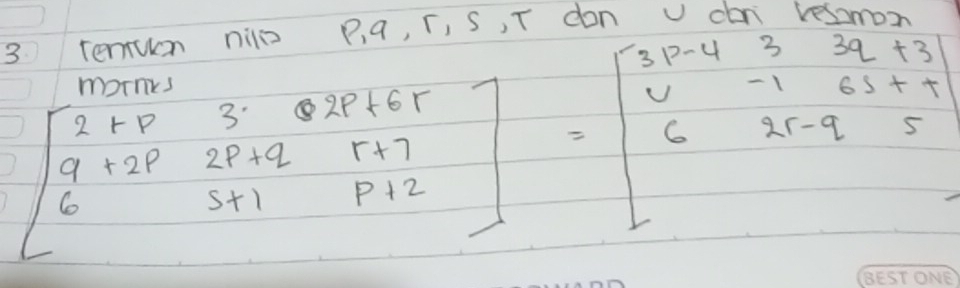 3. Temukan nilai p,q,r,s,T dan u dari kesamaan
matriks
[2+p 3 2p+6r
q+2p 2p+q r+7
6 s+1 p+2]
=
[3p-4 3 3q+3
u -1 6s+t
6 2r-q 5]
BEST ONE